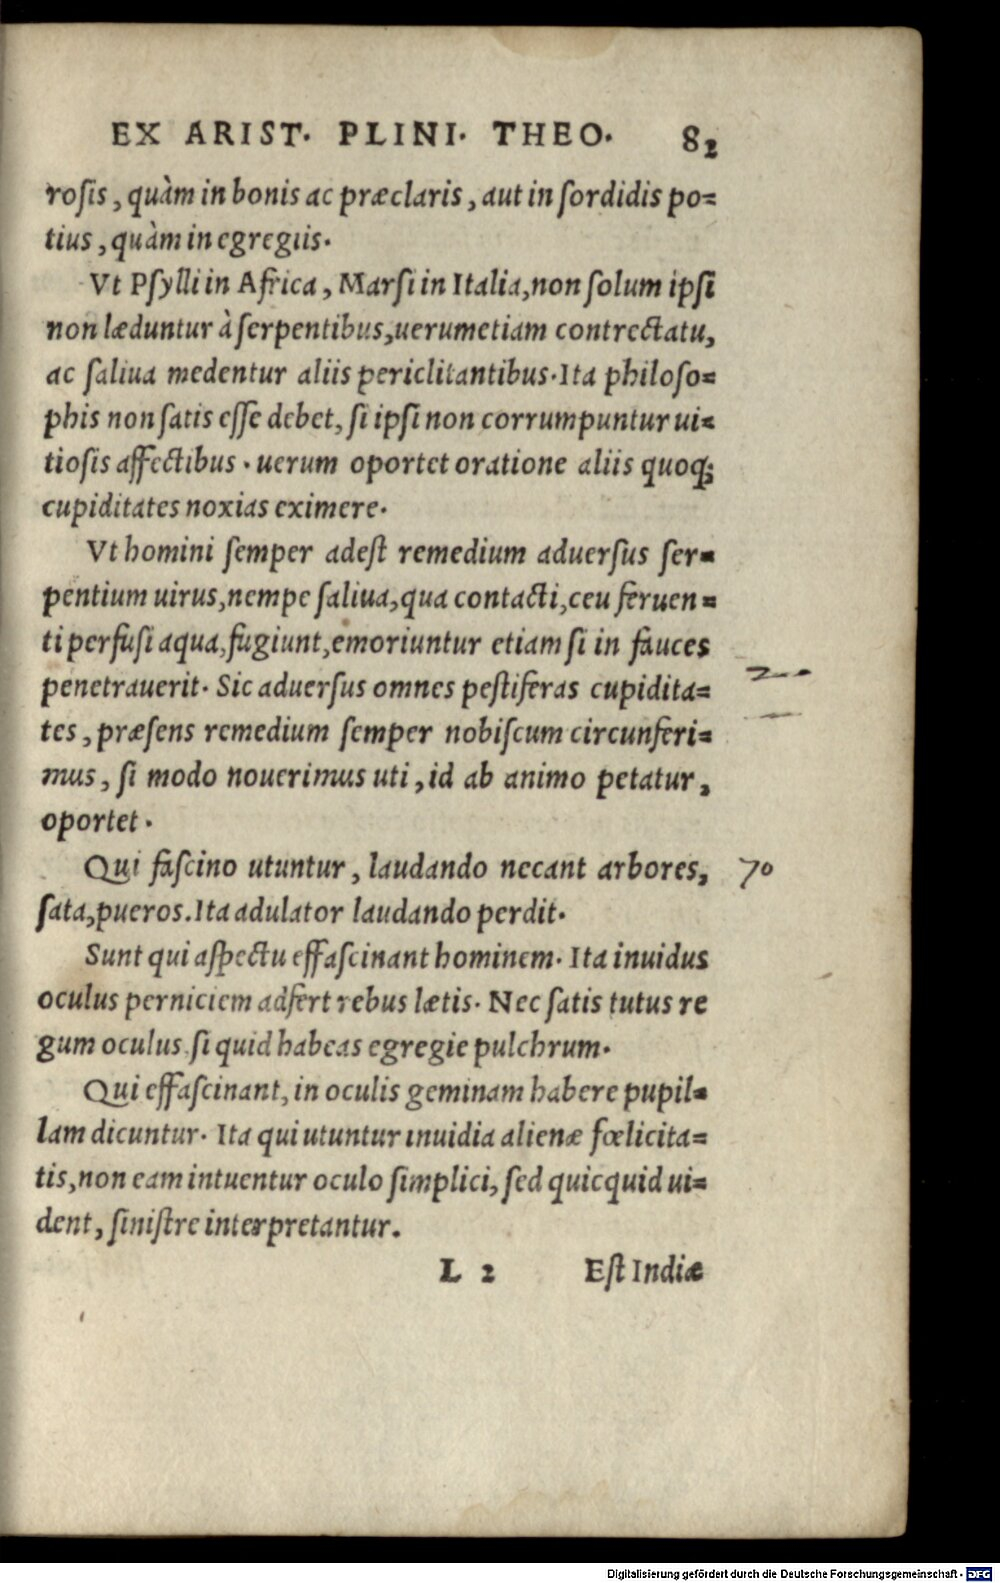 EX ARIST. PLINI. THEO. 82
rosis, quàm in bonis ac præclaris, aut in sordidis po=
tius, quàm in egregiis.
Vt Psylli in Africa, Marsi in Italia, non solum ipsi
non læduntur à serpentibus, uerumetiam contrectatu,
ac saliua medentur aliis periclitantibus. Ita philoso=
phis non satis esse debet, si ipsi non corrumpuntur ui=
tiosis affectibus. uerum oportet oratione aliis quoq;
cupiditates noxias eximere.
Vt homini semper adest remedium aduersus ser=
pentium uirus, nempe saliua, qua contacti, ceu feruen=
ti perfusi aqua, fugiunt, emoriuntur etiam si in fauces
penetrauerit. Sic aduersus omnes pestiferas cupidita=
tes, præsens remedium semper nobiscum circunferi=
mus, si modo nouerimus uti, id ab animo petatur,
oportet.
Qui fascino utuntur, laudando necant arbores, 70
sata, pueros. Ita adulator laudando perdit.
Sunt qui aspectu effascinant hominem. Ita inuidus
oculus perniciem adfert rebus lætis. Nec satis tutus re
gum oculus si quid habeas egregie pulchrum.
Qui effascinant, in oculis geminam habere pupil=
lam dicuntur. Ita qui utuntur inuidia alienæ fœlicita=
tis, non eam intuentur oculo simplici, sed quicquid ui=
dent, sinistre interpretantur.
L 2 Est Indiæ
Digitalisierung gefördert durch die Deutsche Forschungsgemeinschaft - DFG